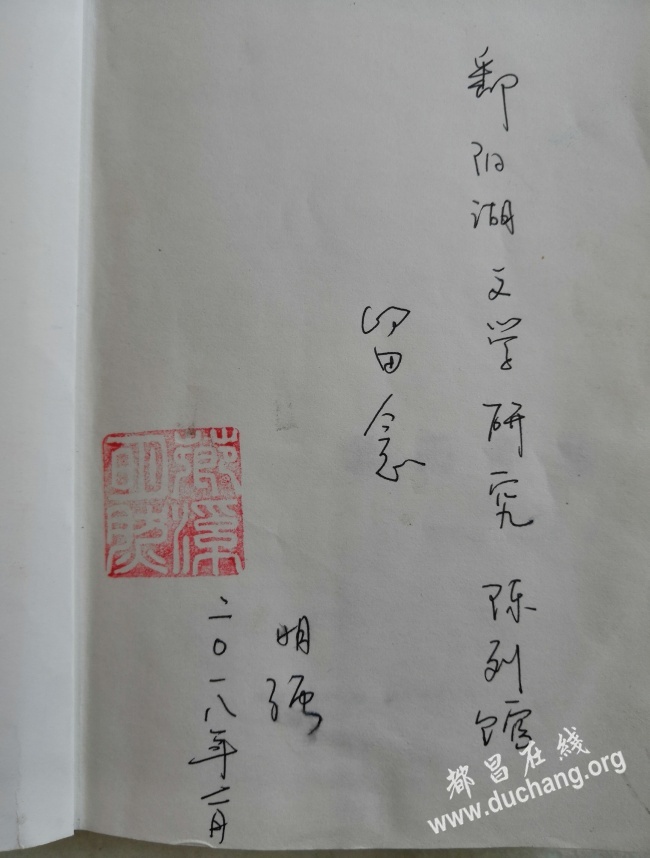 鄱阳湖文学研究陈列馆
留念
明强
二〇一八年二月
都昌在线
www.duchang.org